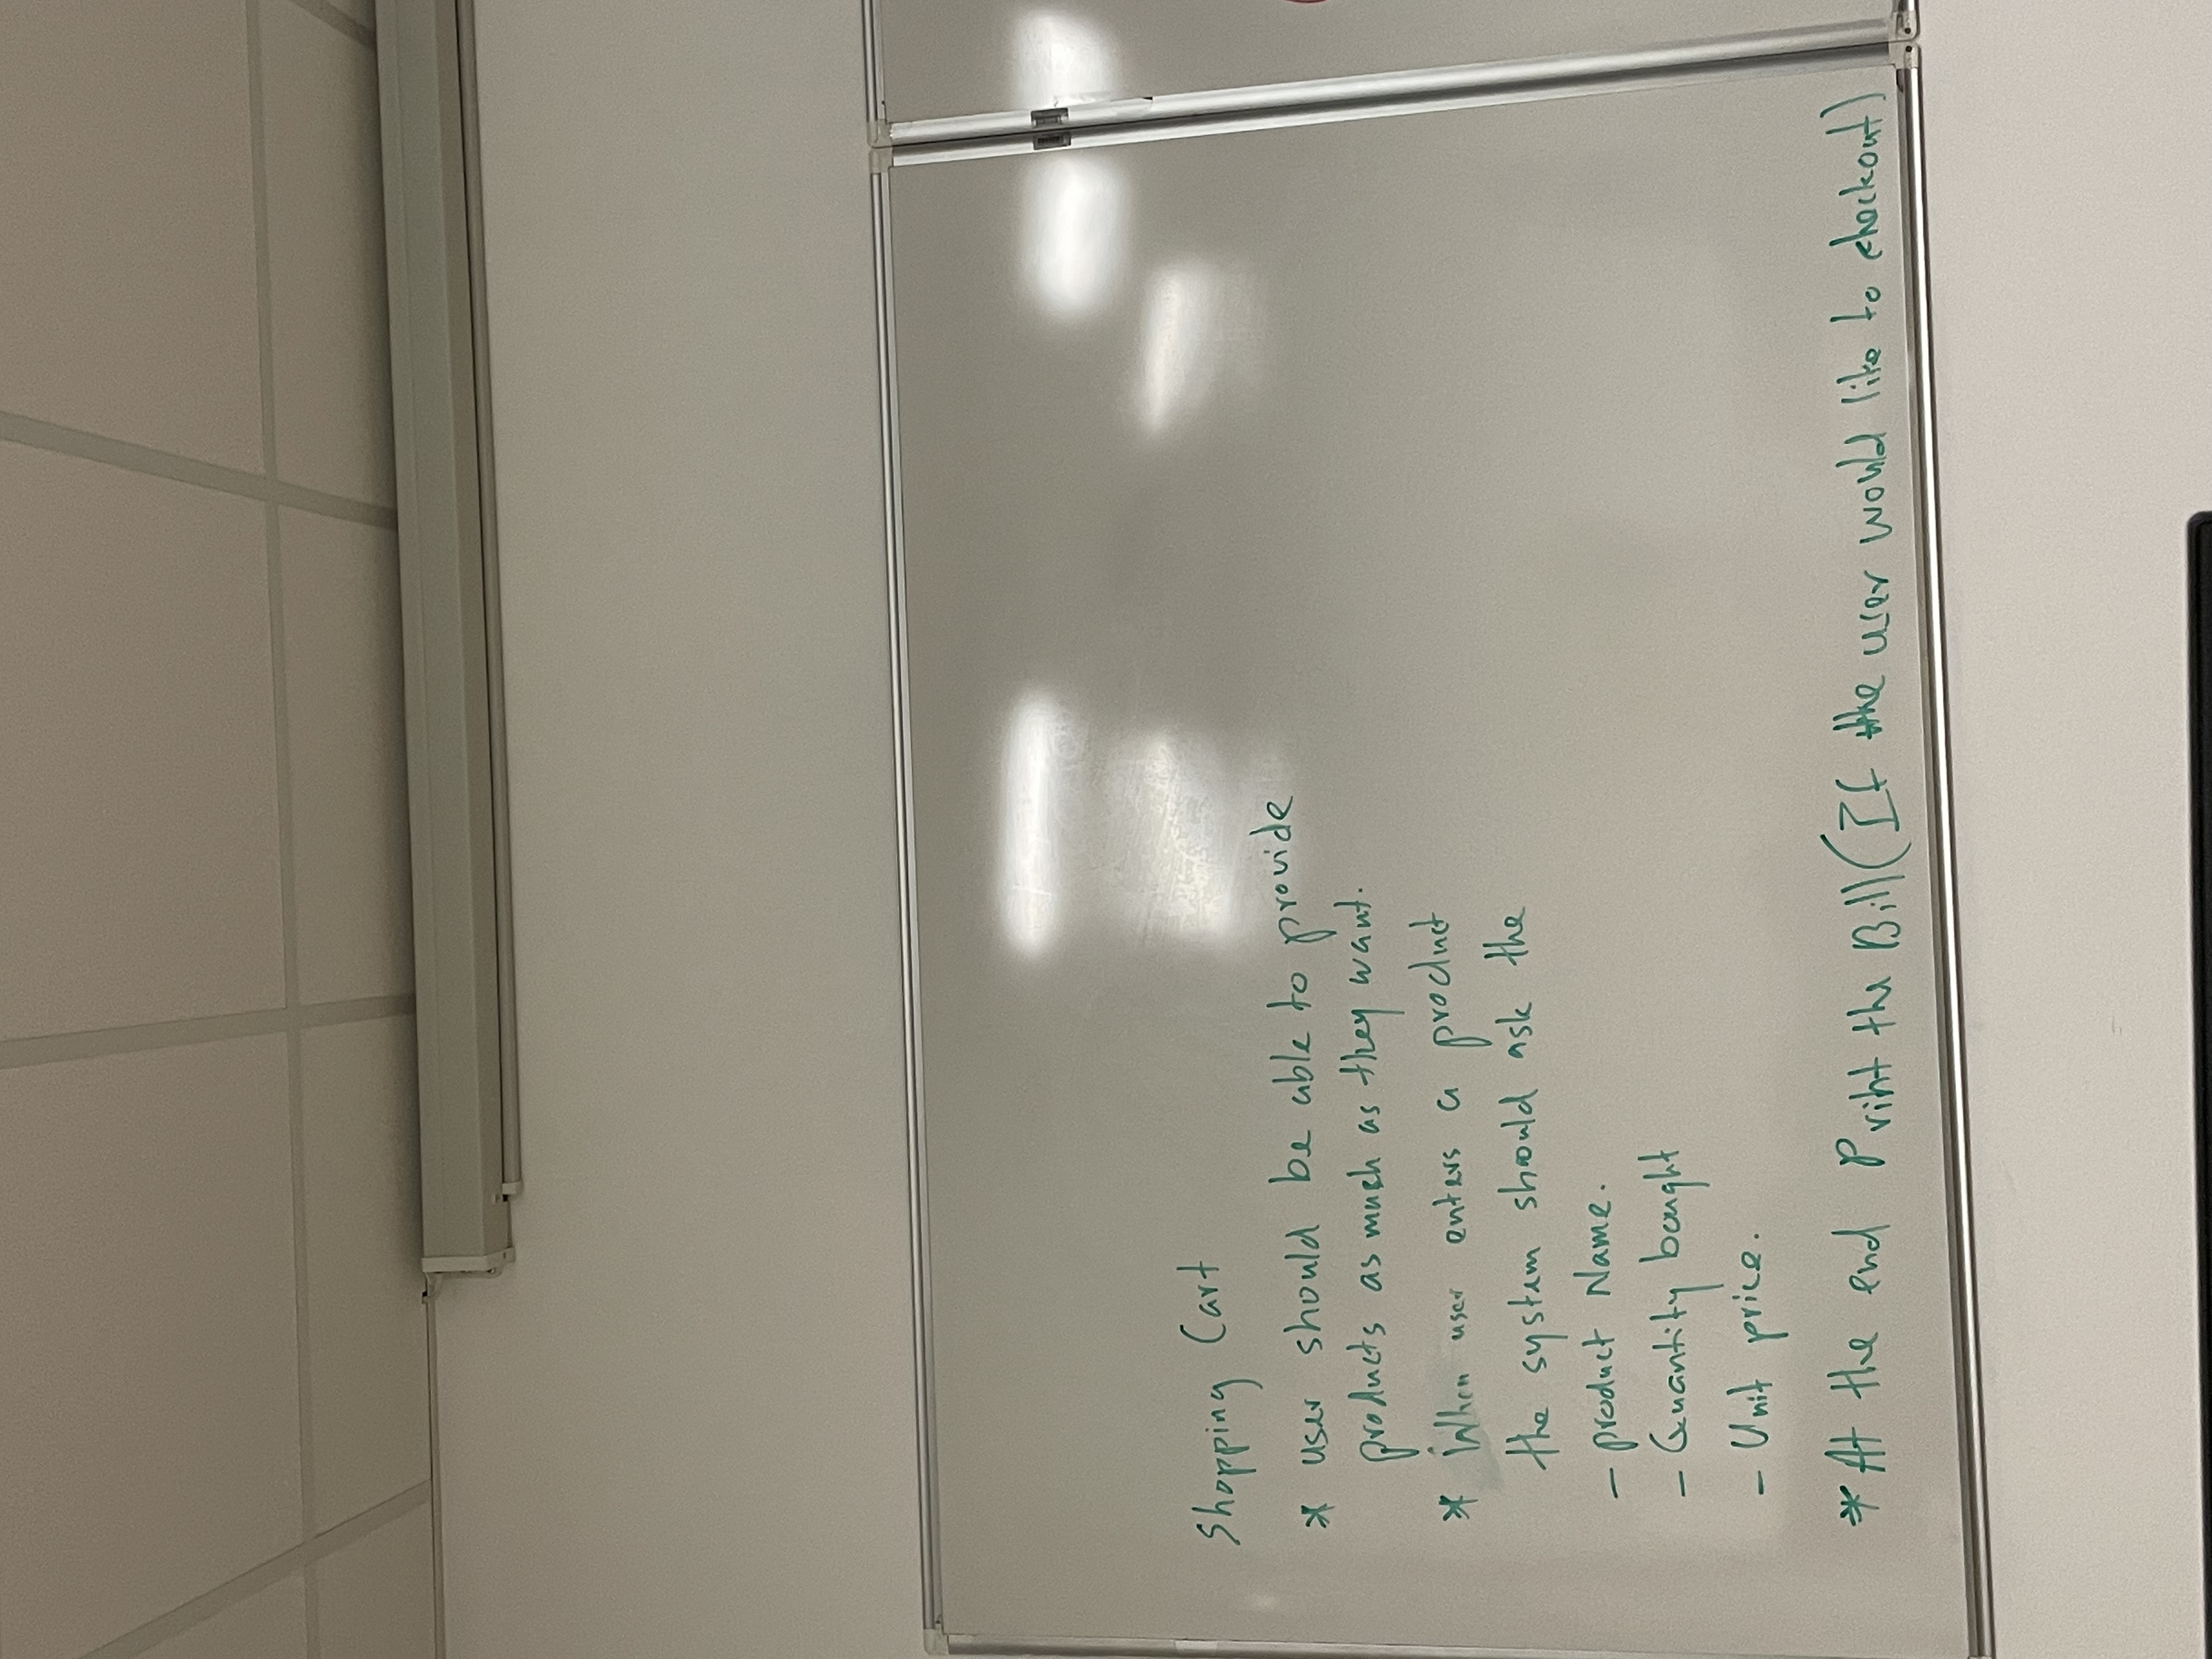 Shopping Cart
* user should be able to provide
products as much as they want.
* When user enters a product
the system should ask the
- product Name.
- Quantity bought
- Unit price.
* At the end Print the Bill (If the user would like to checkout)